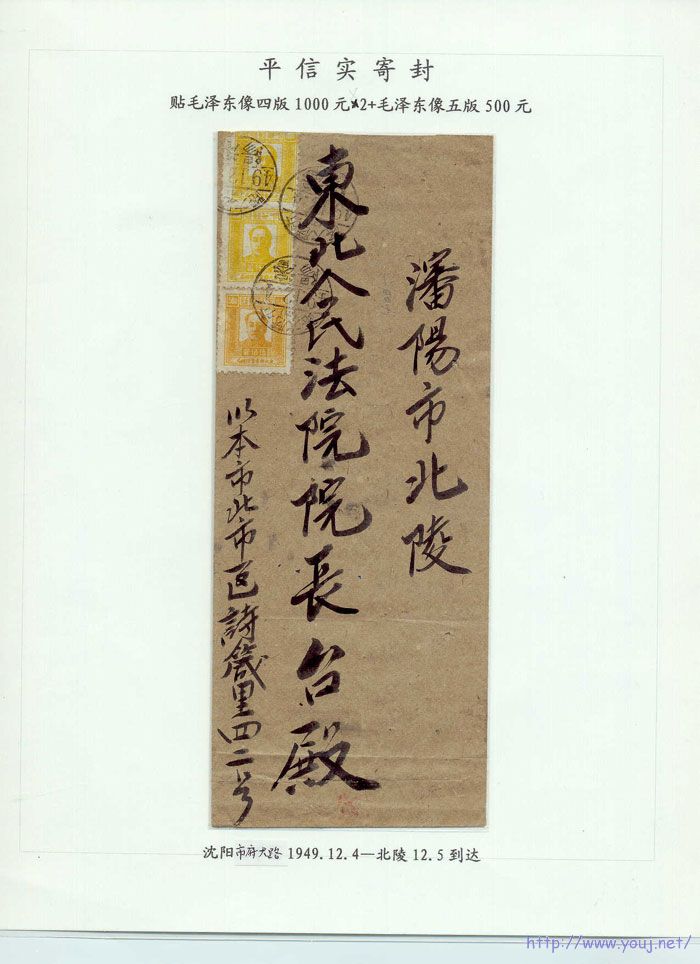 平信实寄封
贴毛泽东像四版1000元×2+毛泽东像五版500元
瀋陽市北陵
東北人民法院院長台殿
本市北市區詩箴里四二号
沈阳市府大路 1949.12.4—北陵 12.5 到达
http://www.youj.net/